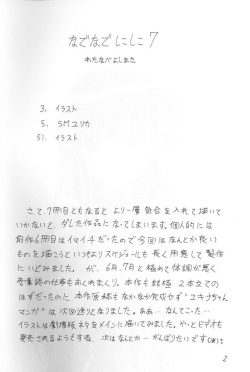 なでなでにしこ 7
わたなべよしまさ
3. イラスト
5. SMユリカ
51. イラスト
さて、7冊目ともなると より一層 気合を入れて描いて
いかないと、ダレた作品に なってしまいます。個人的には
前作6冊目は イマイチだったので今回は なんとか良い
ものを描こうと いつもよりスケジュールも 長く用意して製作
にいどみました。 が、6月、7月と極めて体調が悪く
本作も 2本立ての
はずだったのに
マンガ"は 次回送りと なりました。ああ… なんてこった…
イラストは劇場版ネタをメインに描いてみました。やっとビデオも
発売されるようですね。次はなんとか… がんばりたいです
2